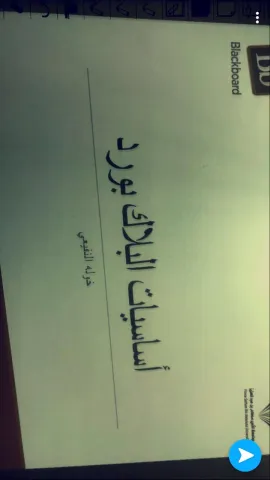 Bb
Blackboard
أساسيات البلاك بورد
خوله النفيعي